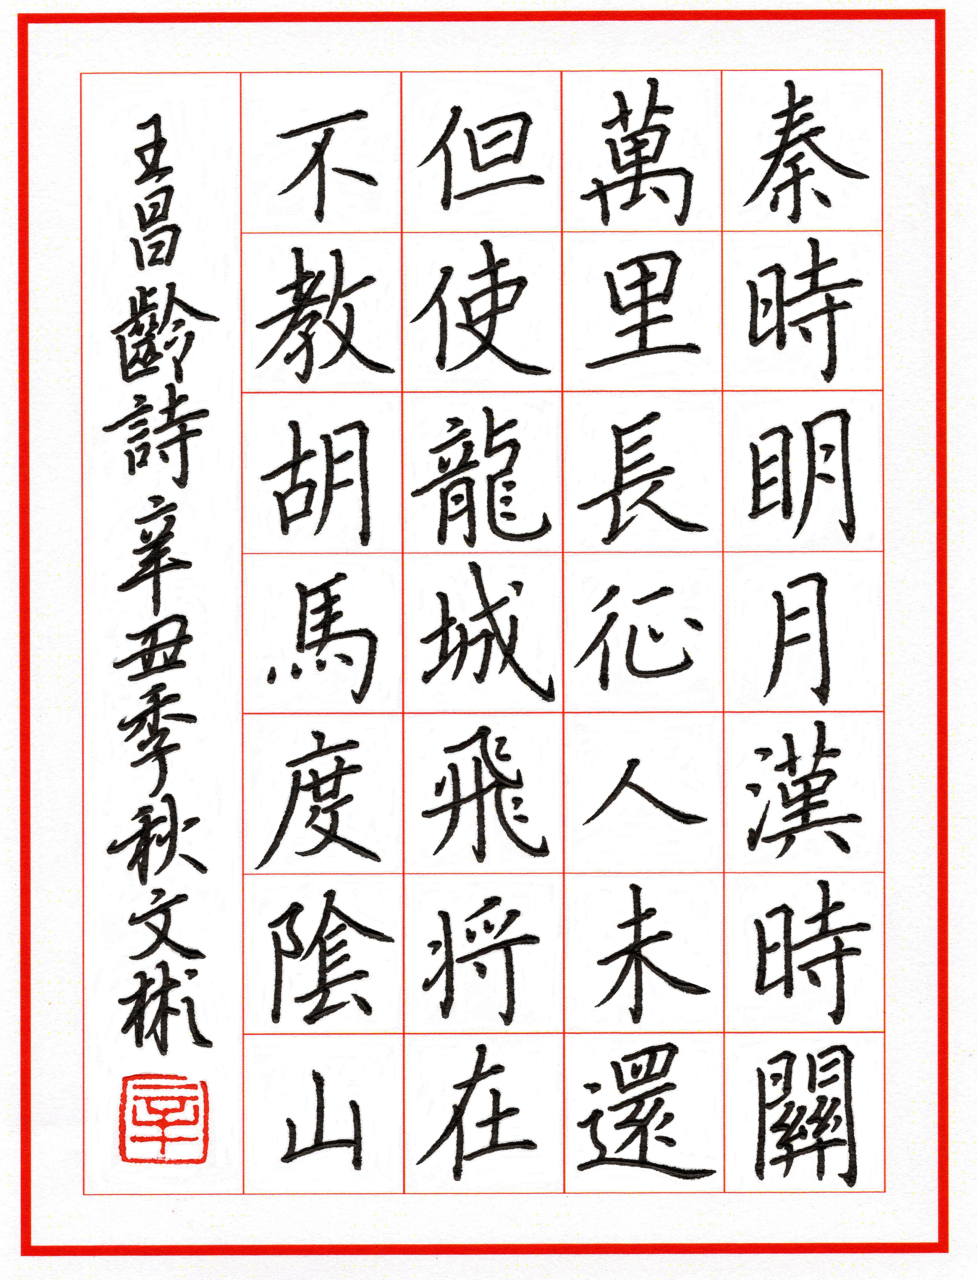 秦時明月漢時關
萬里長征人未還
但使龍城飛將在
不教胡馬度陰山
王昌齡詩辛丑季秋文彬